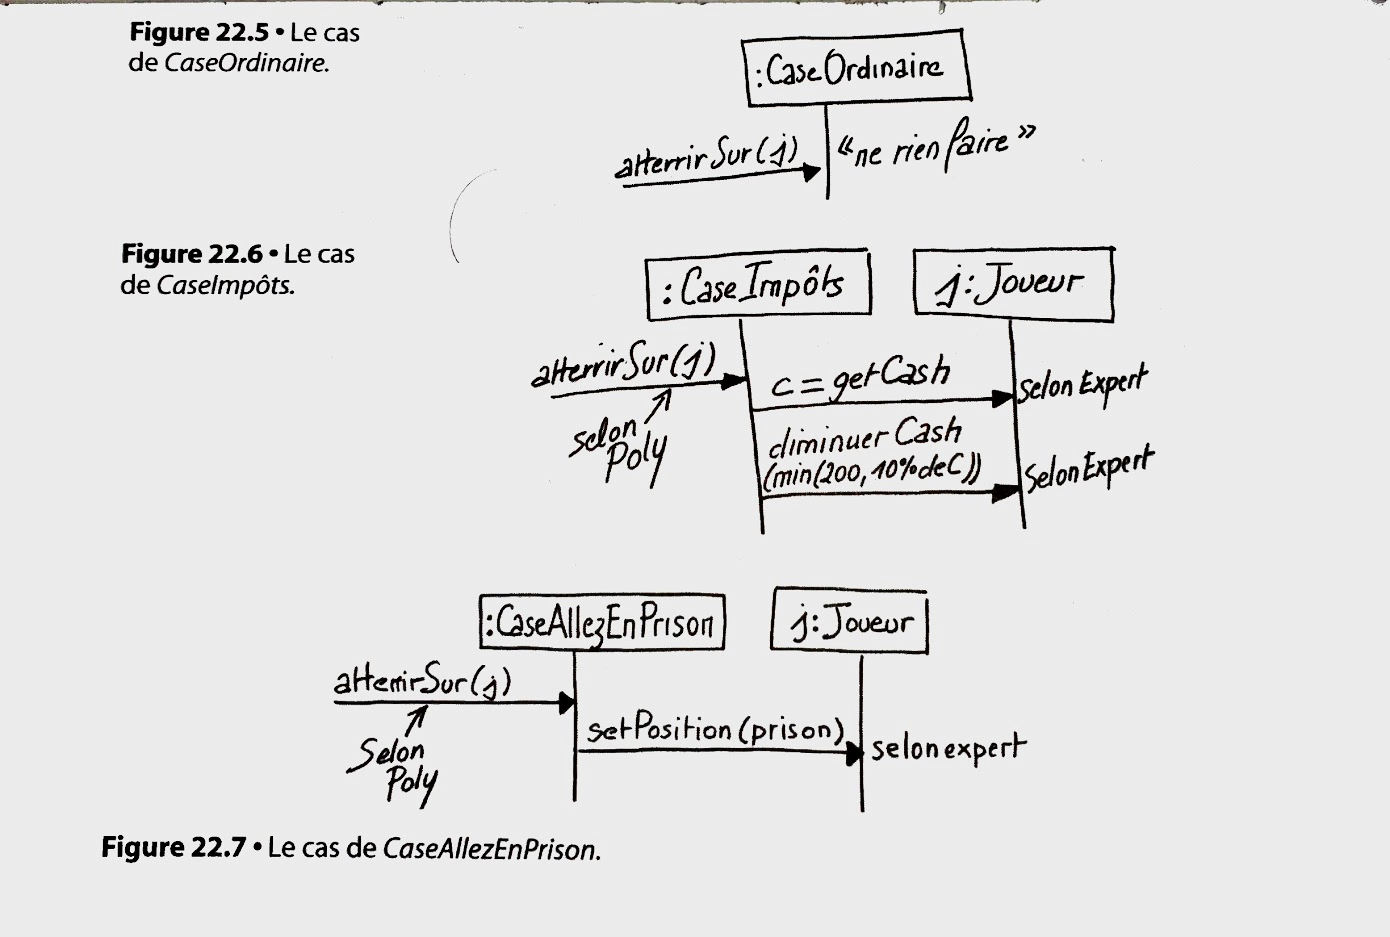 Figure 22.5 • Le cas
de CaseOrdinaire.
:CaseOrdinaire
atterrirSur(j)
“ne rien faire”
Figure 22.6 • Le cas
de CaseImpôts.
:CaseImpôts
j:Joueur
atterrirSur(j)
selon
Poly
c = getCash
selon Expert
diminuer Cash
(min(200, 10% de C))
Selon Expert
:CaseAllezEnPrison
j:Joueur
atterrirSur(j)
Selon
Poly
setPosition(prison)
selon expert
Figure 22.7 • Le cas de CaseAllezEnPrison.